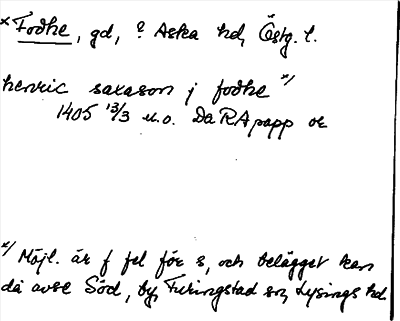 *Fodhe, gd, ? Aska hd, Östg. l.
henric saxason j fodhe */
1405 13/3 u.o. Da RA papp or
*/ Möjl. är f fel för s, och belägget kan
då avse Söd, by, Furingstad sn, Lysings hd